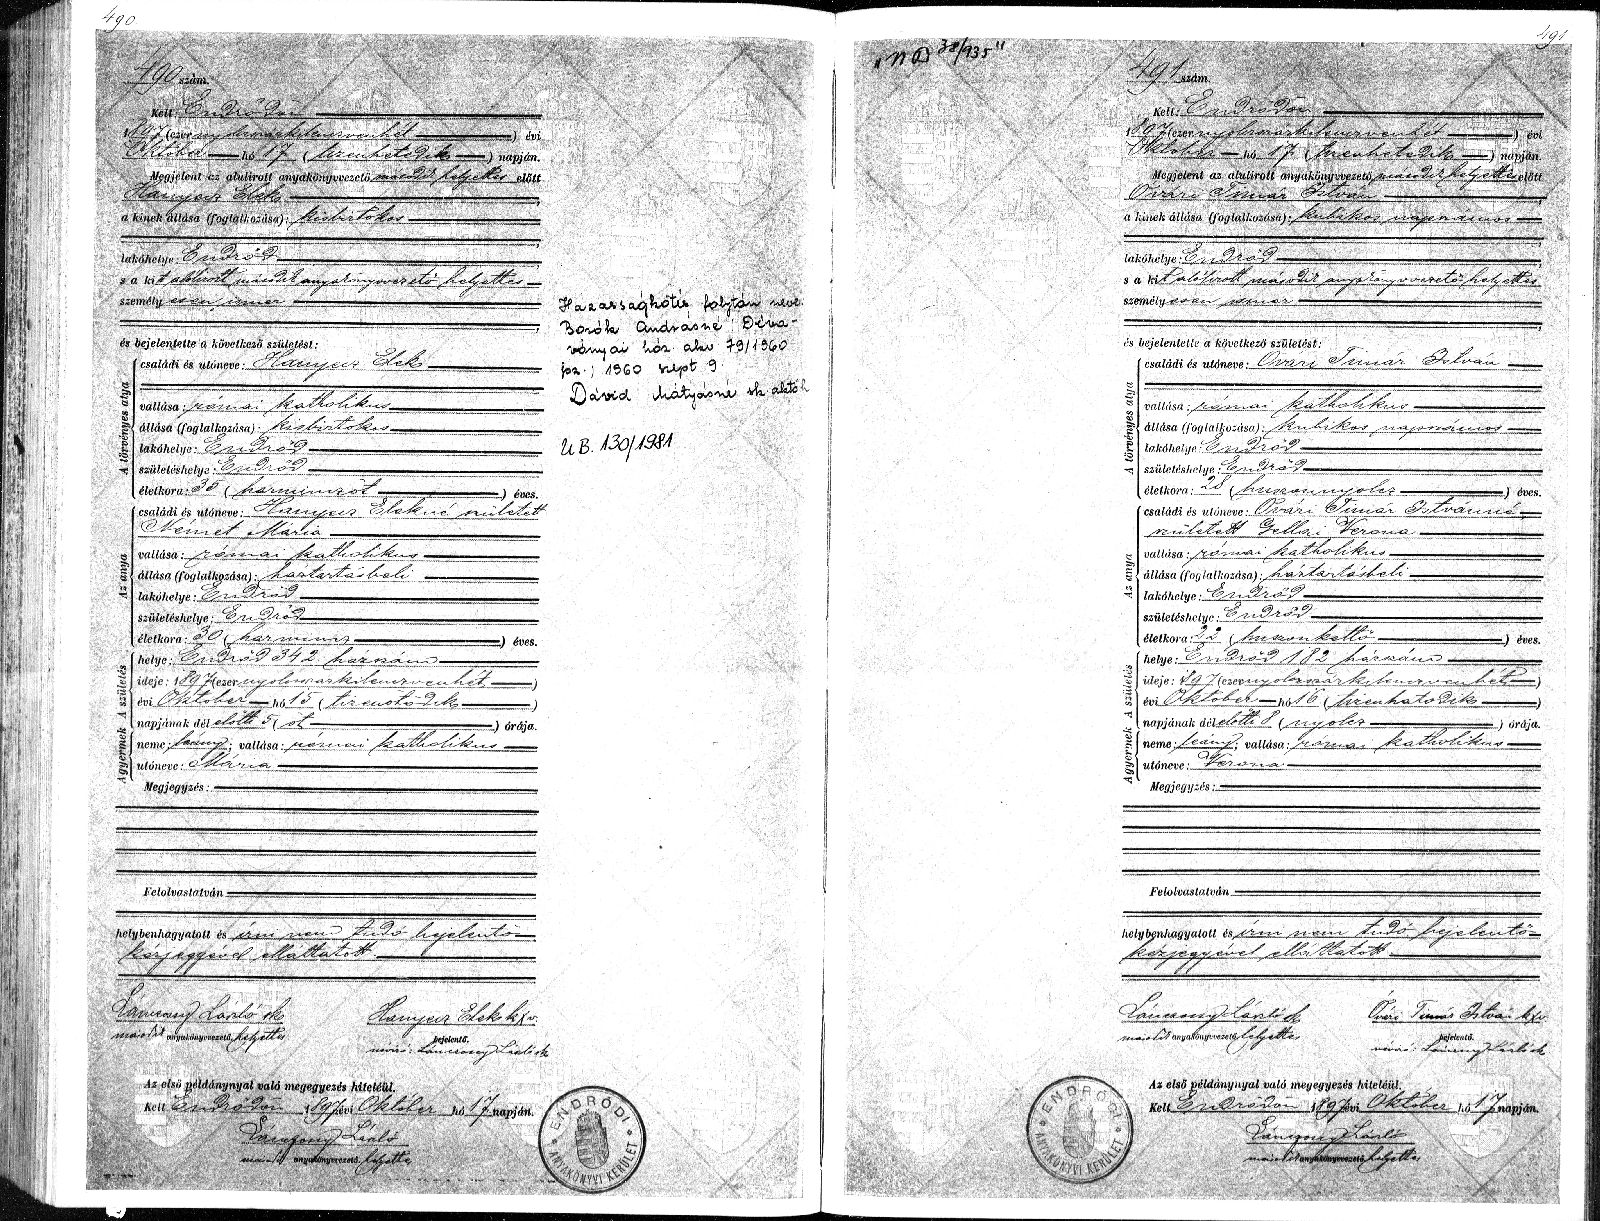 490.
490 szám.
Kelt Endrődön
1897 (ezer nyolczszázkilenczvenhét) évi
Október hó 17 (tizenhetedik) napján.
Megjelent az alulirott anyakönyvvezető másodh helyettes előtt
Hanyecz Elek
a kinek állása (foglalkozása): kisbirtokos
lakóhelye: Endrőd
s a kit alólirott másodh anyakönyvvezető helyettes
személyesen ismer
és bejelentette a következő születést:
A törvényes atyja
családi és utóneve: Hanyecz Elek
vallása: római katholikus
állása (foglalkozása): kisbirtokos
lakóhelye: Endrőd
születéshelye: Endrőd
életkora: 35 (harminczöt) éves.
Az anya
családi és utóneve: Hanyecz Elekné született
Német Mária
vallása: római katholikus
állása (foglalkozása): háztartásbeli
lakóhelye: Endrőd
születéshelye: Endrőd
életkora: 30 (harmincz) éves.
A gyermek A születés
helye: Endrőd 342 házszám
ideje: 1897 (ezer nyolczszázkilenczvenhét)
évi Október hó 15 (tizenötödik)
napjának dél előtt 5 (öt) órája.
neme: leány; vallása: római katholikus
utóneve: Mária
Megjegyzés:
Felolvastatván
helybenhagyatott és irni nem tudó bejelentő
kézjegyével elláttatott.
Lánczony László sk
másodh anyakönyvvezető helyettes
Hanyecz Elek k x v.
bejelentő.
névíró: Lánczony László sk
Az első példánynyal való megegyezés hiteléül.
Kelt Endrődön 1897 évi Október hó 17 napján.
Lánczony László
másodh anyakönyvvezető helyettes
ENDRŐDI
ANYAKÖNYVI KERÜLET
Házasságkötés folytán neve:
Borók Andrásné Déva-
ványai ház. akv 79/1960
fsz.; 1960 szept 9
Dávid Mátyásné sk
U B. 130/1981
491
"N Ü 38/935"
491 szám.
Kelt: Endrődön
1897 (ezer nyolczszázkilenczvenhét) évi
Október hó 17 (tizenhetedik) napján.
Megjelent az alulirott anyakönyvvezető másodh helyettes előtt
Óvári Timár István
a kinek állása (foglalkozása): kubikos napszámos
lakóhelye: Endrőd
s a kit alólirott másodh anyakönyvvezető helyettes
személyesen ismer
és bejelentette a következő születést:
A törvényes atyja
családi és utóneve: Óvári Timár István
vallása: római katholikus
állása (foglalkozása): kubikos napszámos
lakóhelye: Endrőd
születéshelye: Endrőd
életkora: 28 (huszonnyolcz) éves.
Az anya
családi és utóneve: Óvári Timár Istvánné
született Gellai Verona
vallása: római katholikus
állása (foglalkozása): háztartásbeli
lakóhelye: Endrőd
születéshelye: Endrőd
életkora: 22 (huszonkettő) éves.
A gyermek A születés
helye: Endrőd 182 házszám
ideje: 1897 (ezer nyolczszázkilenczvenhét)
évi Október hó 16 (tizenhatodik)
napjának dél előtti 8 (nyolcz) órája.
neme: leány; vallása: római katholikus
utóneve: Verona
Megjegyzés:
Felolvastatván
helybenhagyatott és irni nem tudó bejelentő
kézjegyével elláttatott.
Lánczony László sk
másodh anyakönyvvezető helyettes
Óvári Timár István k x v
bejelentő.
névíró: Lánczony László sk
Az első példánynyal való megegyezés hiteléül.
Kelt Endrődön 1897 évi Október hó 17 napján.
Lánczony László
másodh anyakönyvvezető helyettes
ENDRŐDI
ANYAKÖNYVI KERÜLET